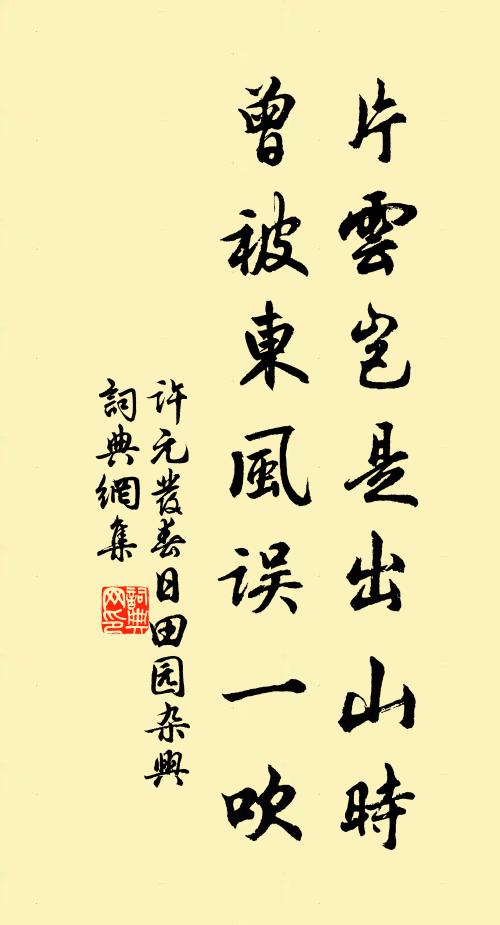 片雲豈是出山時
曾被東風误一吹
许元發春日田园杂興
詞典網集
詞典网印